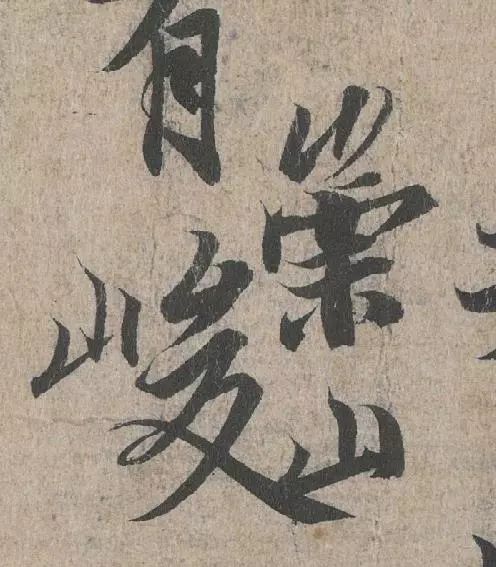 有崇山峻